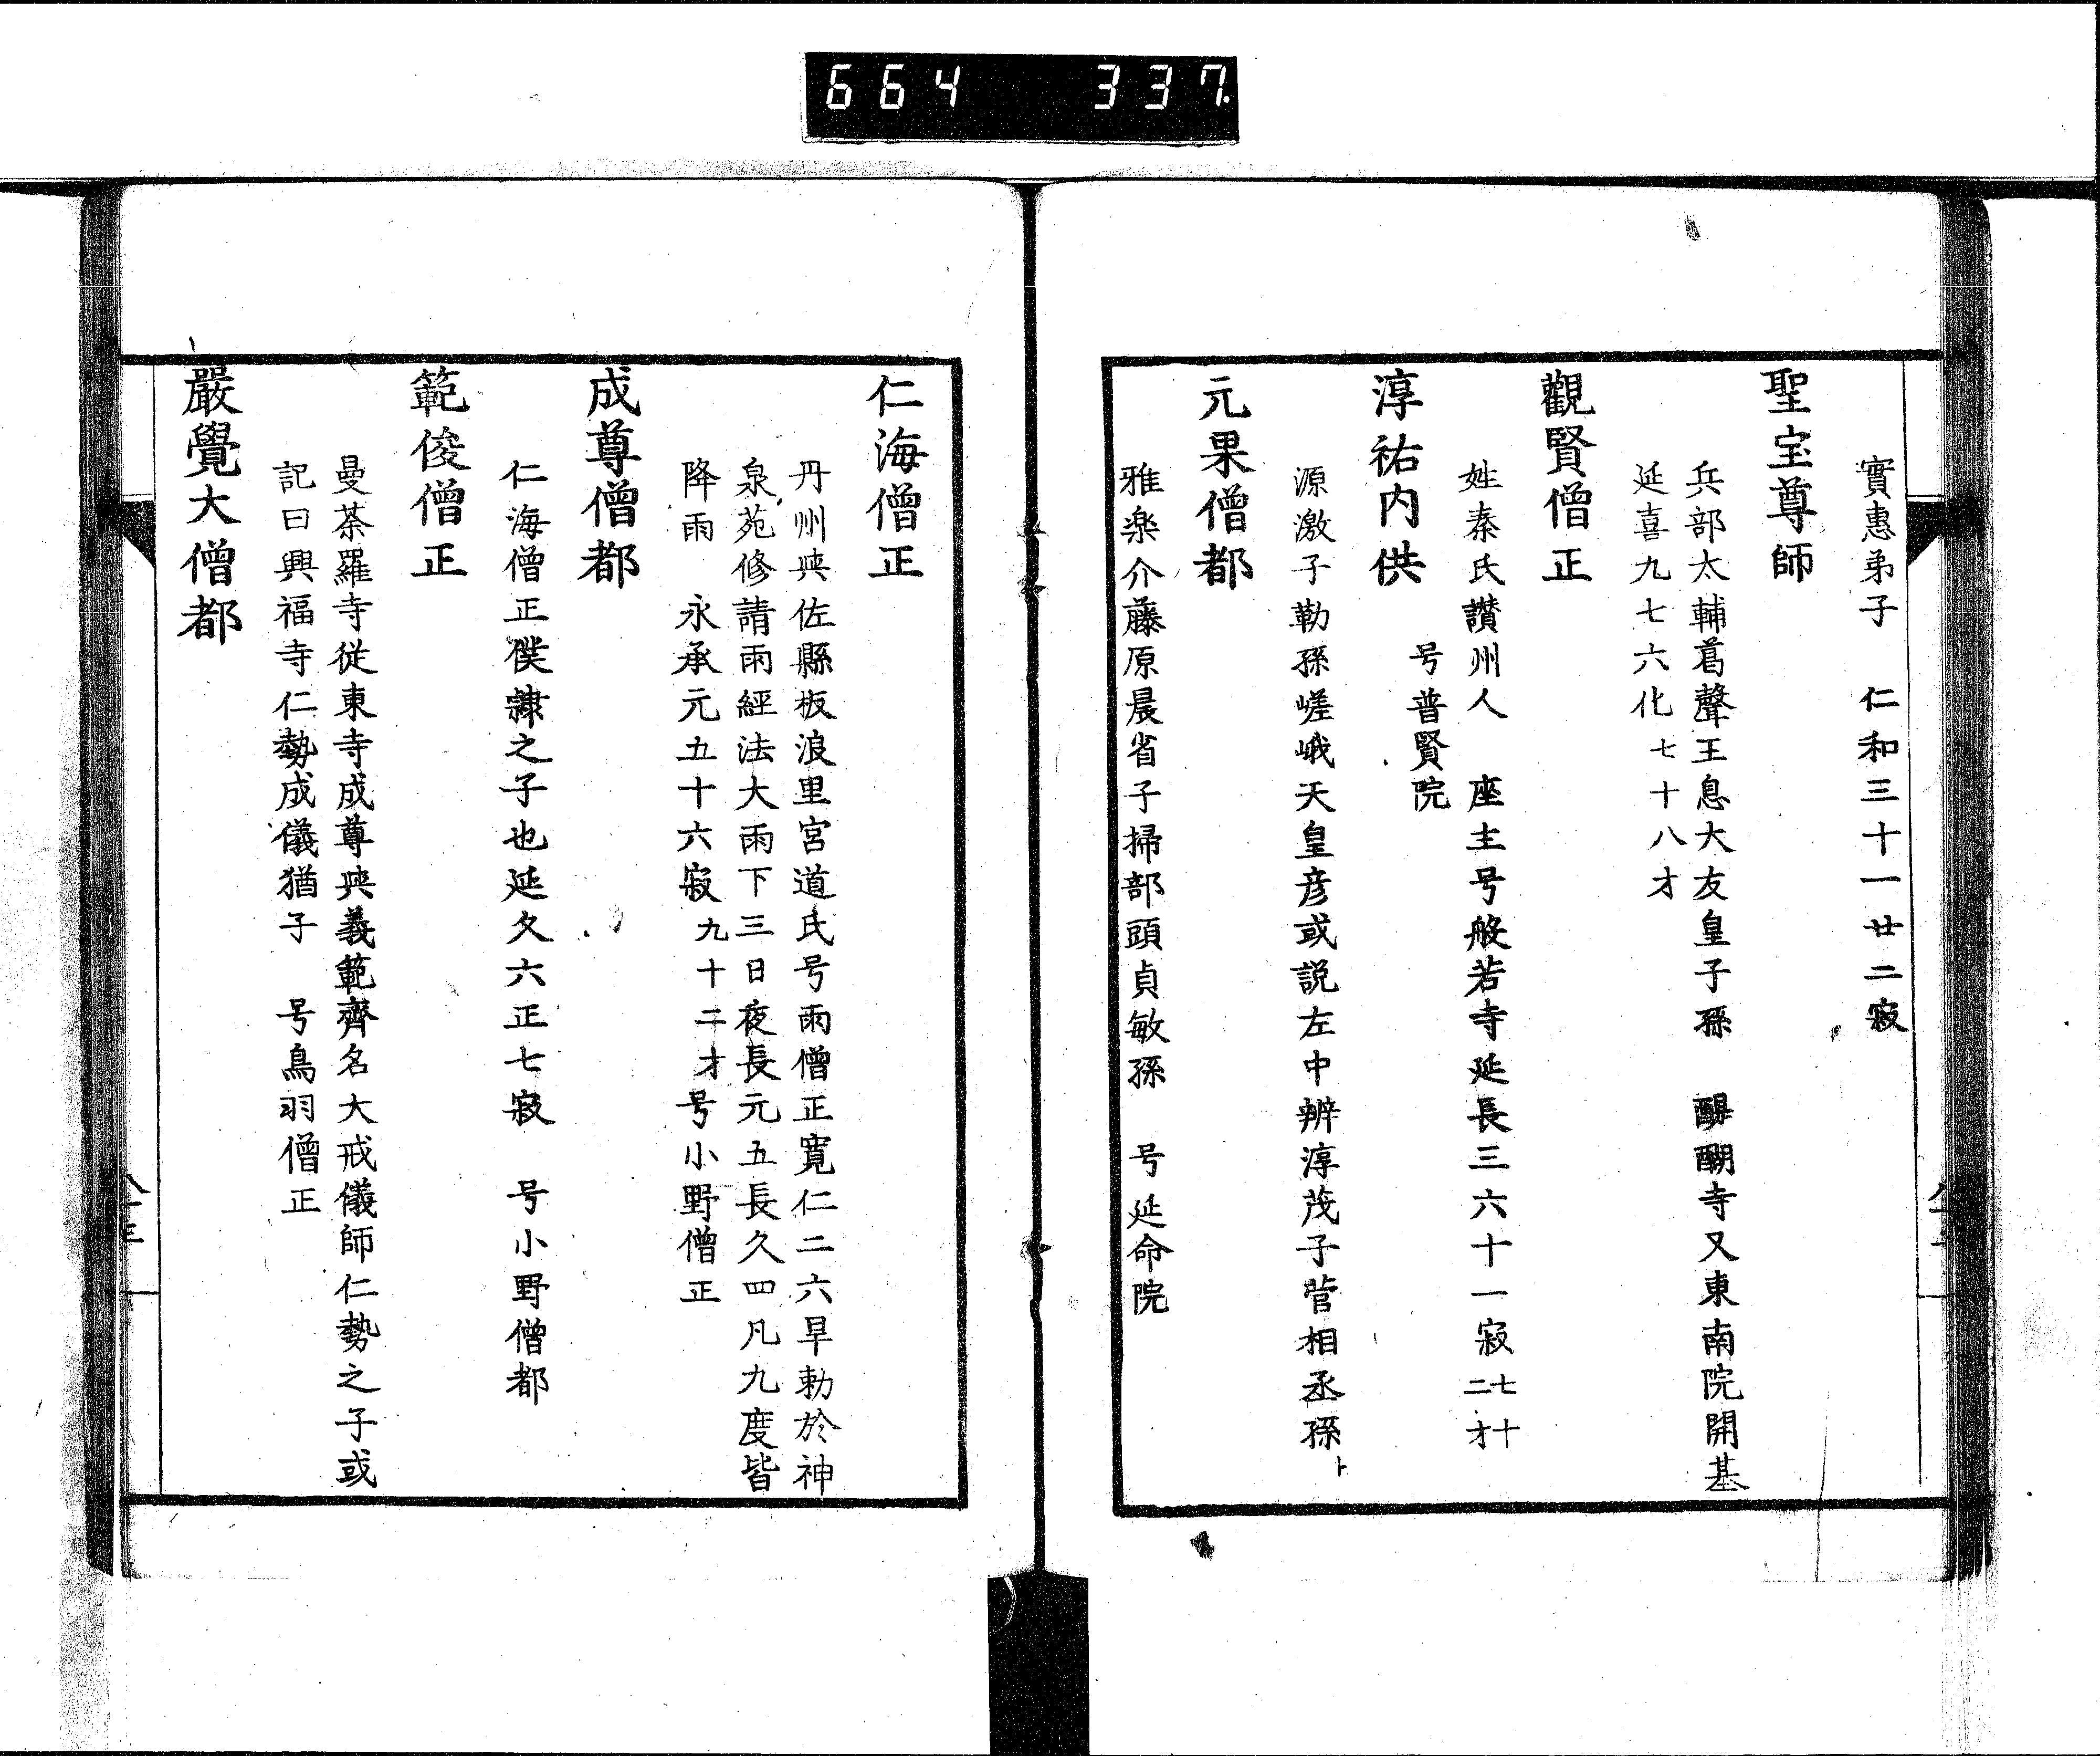 664 337
實惠弟子 仁和三十一廿二寂
聖宝尊師
兵部太輔葛聲王息大友皇子孫 醍醐寺又東南院開基
延喜九七六化七十八才
觀賢僧正
姓秦氏讃州人 座主号般若寺延長三六十一寂七十二才
淳祐内供 号普賢院
源激子勒孫嵯峨天皇彦或説左中辨淳茂子菅相丞孫
元果僧都
雅楽介藤原晨省子掃部頭貞敏孫 号延命院
仁海僧正
丹州與佐縣板浪里宮道氏号雨僧正寛仁二六旱勅於神
泉苑修請雨經法大雨下三日夜長元五長久四凡九度皆
降雨 永承元五十六寂九十二才号小野僧正
成尊僧都
仁海僧正僕隷之子也延久六正七寂 号小野僧都
範俊僧正
曼荼羅寺從東寺成尊與義範齊名大戒儀師仁勢之子或
記曰興福寺仁勢成儀猶子 号鳥羽僧正
嚴覺大僧都